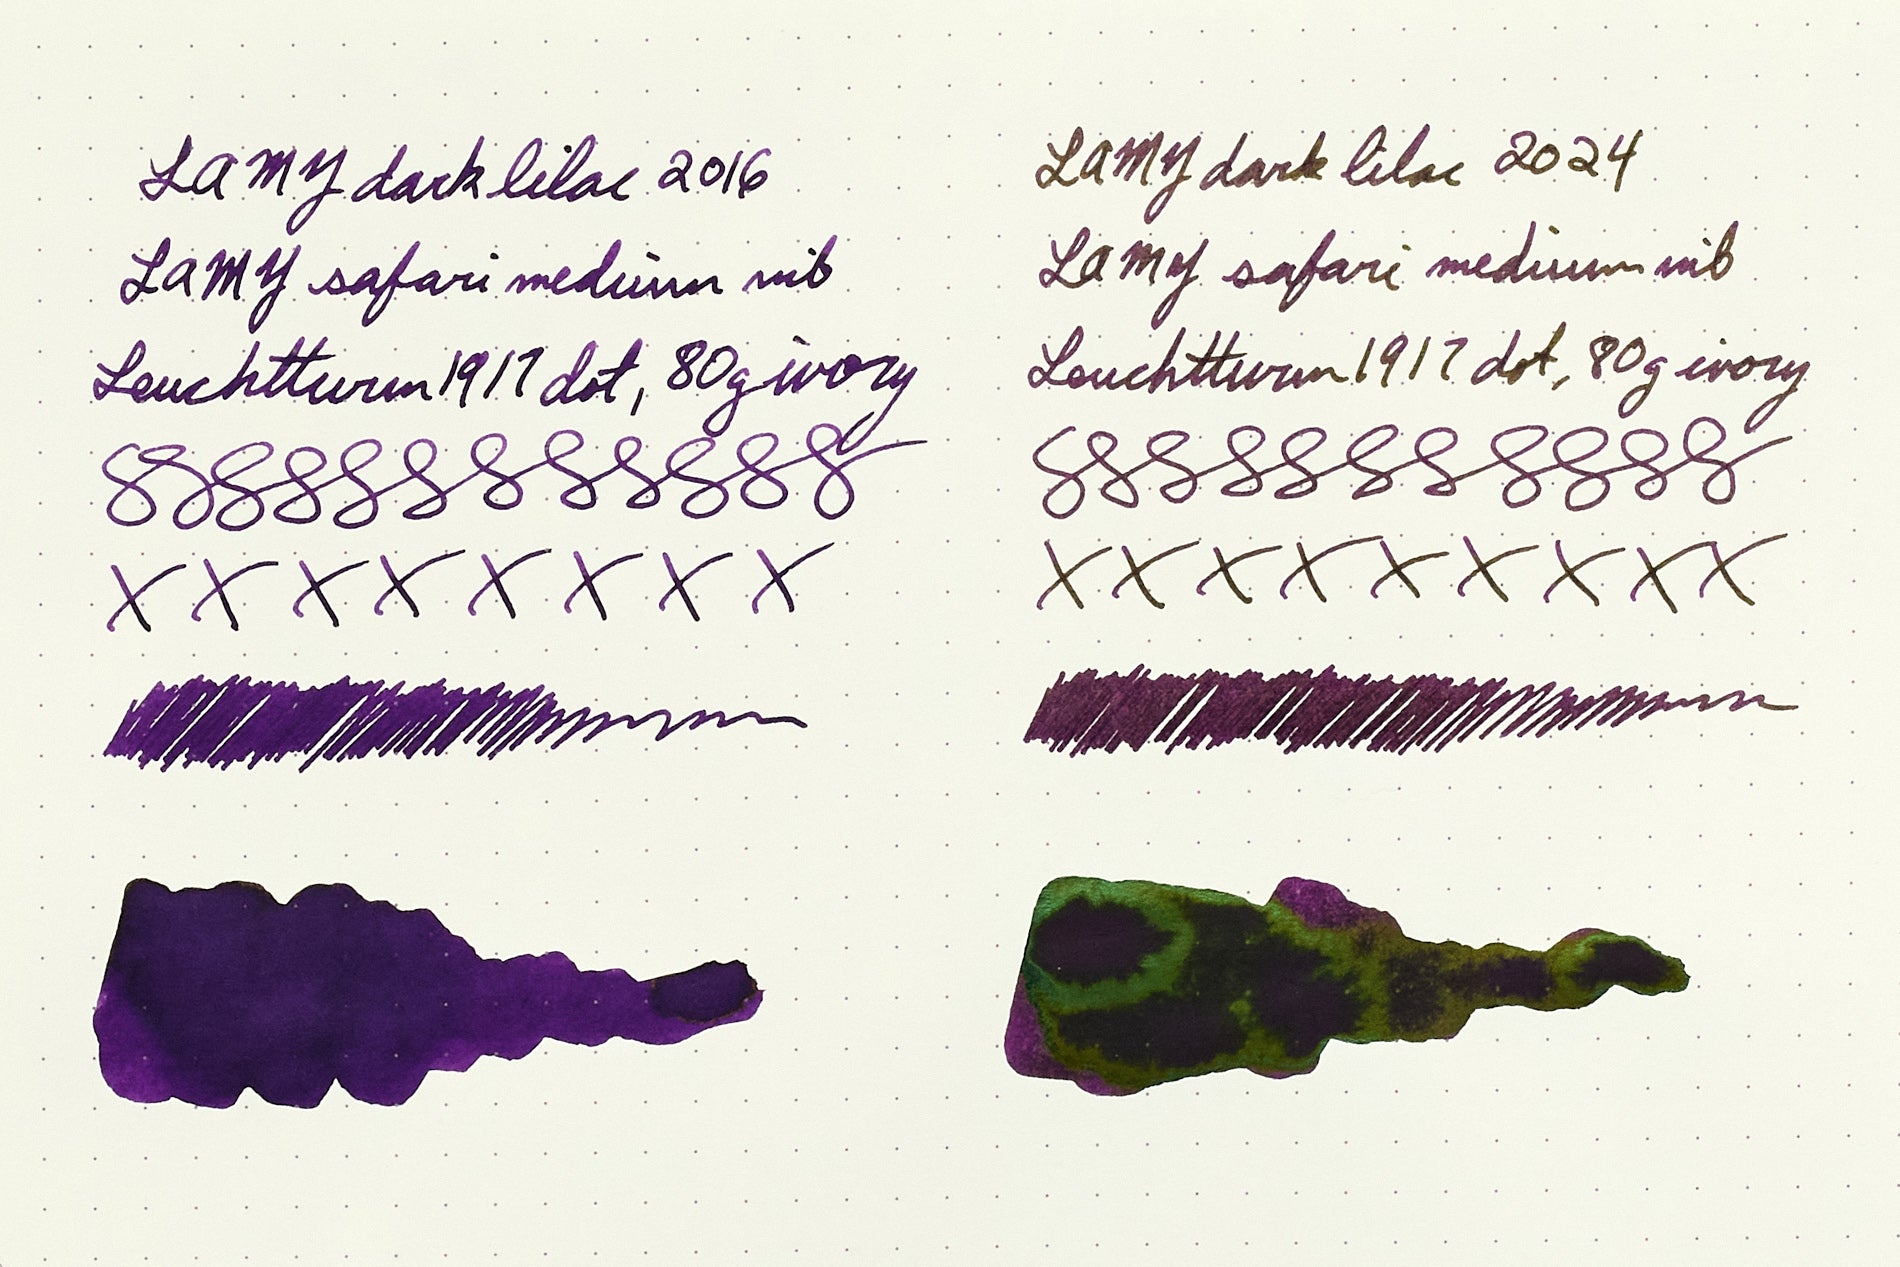 LAMY dark lilac 2016
LAMY safari medium nib
Leuchtturm1917 dot, 80g ivory
x x x x x x x x
LAMY dark lilac 2024
LAMY safari medium nib
Leuchtturm1917 dot, 80g ivory
x x x x x x x x x